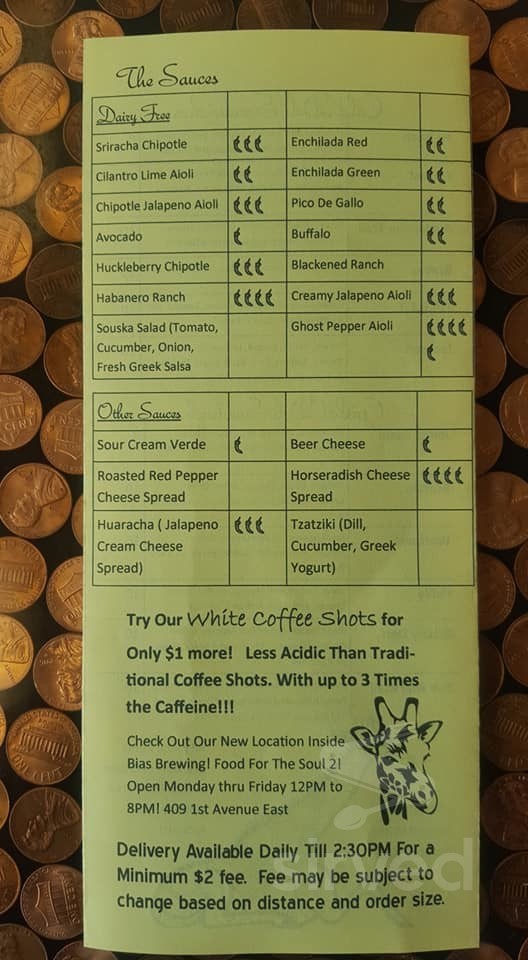 The Sauces
Dairy Free
Sriracha Chipotle Enchilada Red
Cilantro Lime Aioli Enchilada Green
Chipotle Jalapeno Aioli Pico De Gallo
Avocado Buffalo
Huckleberry Chipotle Blackened Ranch
Habanero Ranch Creamy Jalapeno Aioli
Souska Salad (Tomato, Ghost Pepper Aioli
Cucumber, Onion,
Fresh Greek Salsa
Other Sauces
Sour Cream Verde Beer Cheese
Roasted Red Pepper Horseradish Cheese
Cheese Spread Spread
Huaracha ( Jalapeno Tzatziki (Dill,
Cream Cheese Cucumber, Greek
Spread) Yogurt)
Try Our White Coffee Shots for
Only $1 more! Less Acidic Than Tradi-
tional Coffee Shots. With up to 3 Times
the Caffeine!!!
Check Out Our New Location Inside
Bias Brewing! Food For The Soul 2!
Open Monday thru Friday 12PM to
8PM! 409 1st Avenue East
Delivery Available Daily Till 2:30PM For a
Minimum $2 fee. Fee may be subject to
change based on distance and order size.